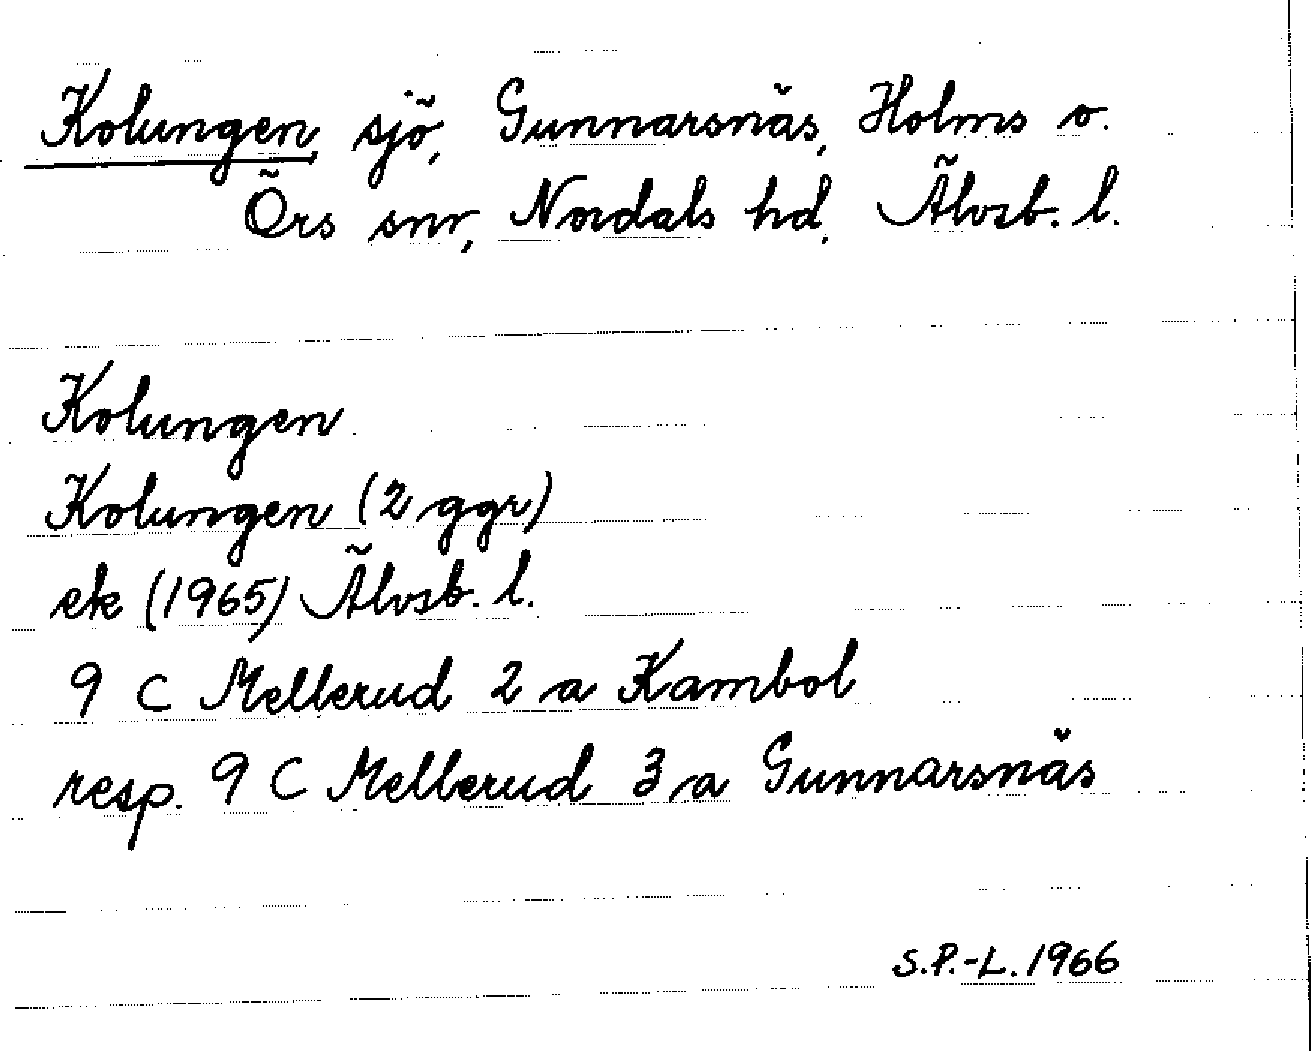 Kolungen, sjö, Gunnarsnäs, Holms o.
Örs snr, Nordals hd, Älvsb. l.
Kolungen
Kolungen (2 ggr)
ek (1965) Älvsb. l.
9 C Mellerud 2 a Kambol
resp. 9 C Mellerud 3 a Gunnarsnäs
S.P.-L. 1966